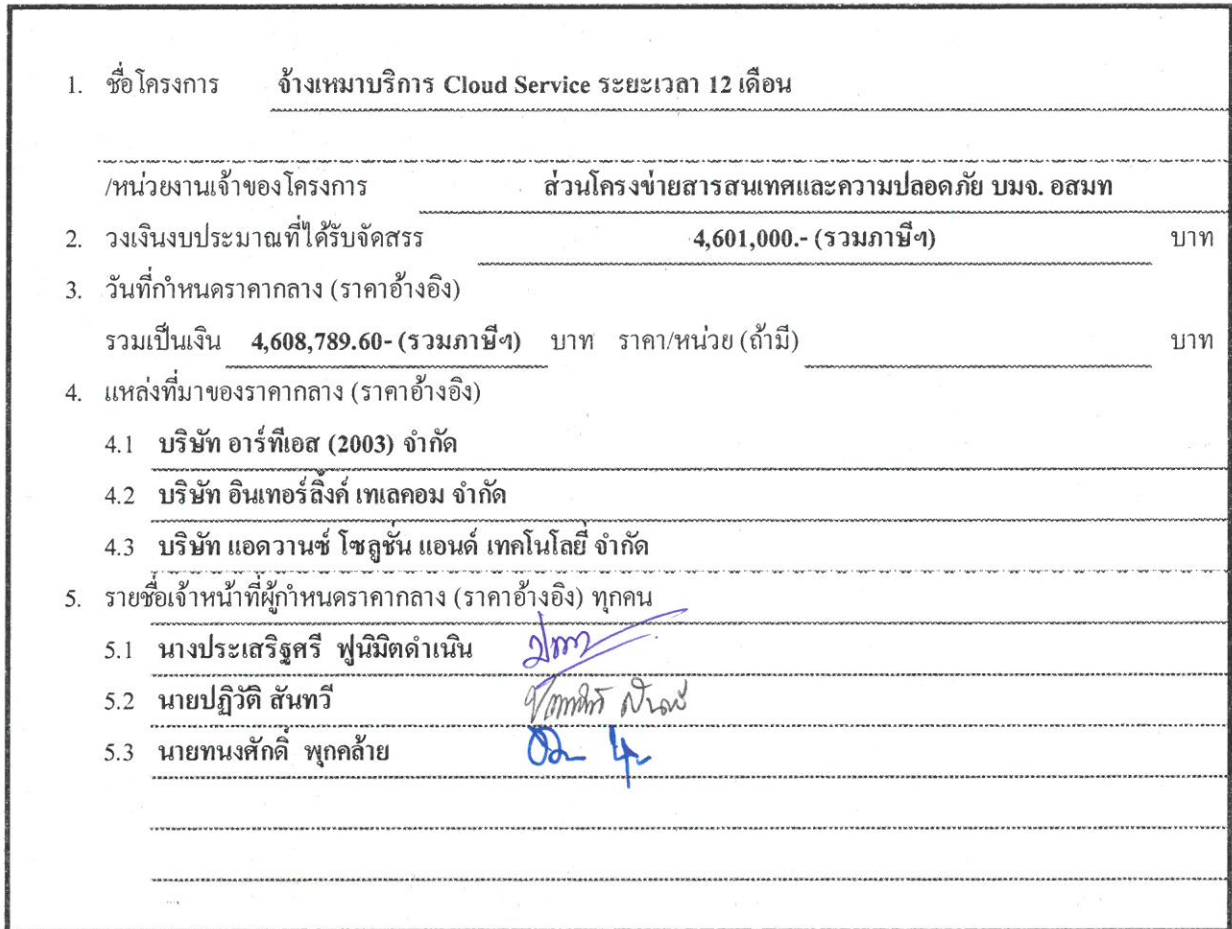 1. ชื่อโครงการ จ้างเหมาบริการ Cloud Service ระยะเวลา 12 เดือน
/หน่วยงานเจ้าของโครงการ ส่วนโครงข่ายสารสนเทศและความปลอดภัย บมจ. อสมท
2. วงเงินงบประมาณที่ได้รับจัดสรร 4,601,000.- (รวมภาษีฯ) บาท
3. วันที่กำหนดราคากลาง (ราคาอ้างอิง)
รวมเป็นเงิน 4,608,789.60- (รวมภาษีฯ) บาท ราคา/หน่วย (ถ้ามี) บาท
4. แหล่งที่มาของราคากลาง (ราคาอ้างอิง)
4.1 บริษัท อาร์ทีเอส (2003) จำกัด
4.2 บริษัท อินเทอร์ลิ้งค์ เทเลคอม จำกัด
4.3 บริษัท แอดวานซ์ โซลูชั่น แอนด์ เทคโนโลยี่ จำกัด
5. รายชื่อเจ้าหน้าที่ผู้กำหนดราคากลาง (ราคาอ้างอิง) ทุกคน
5.1 นางประเสริฐศรี ฟูนิมิตดำเนิน
5.2 นายปฏิวัติ สันทวี
5.3 นายทนงศักดิ์ พุกคล้าย